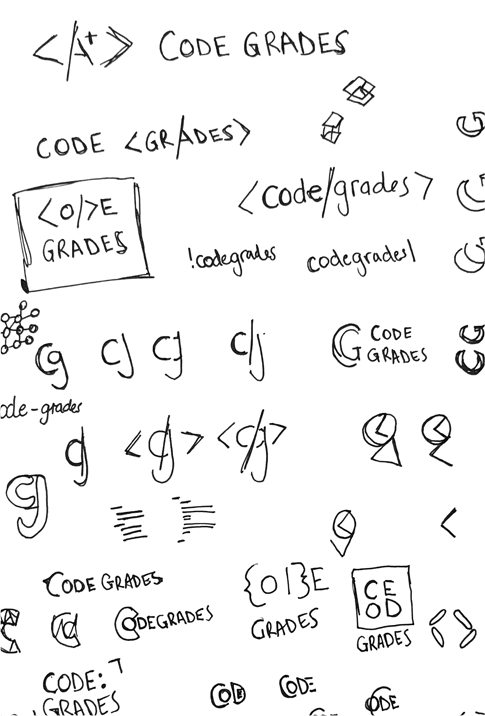 </A+> CODE GRADES
CODE <GR/ADES>
<code/grades>
<O/>E
GRADES
!codegrades codegrades|
cg cg cg c/g
G CODE
GRADES
CG
ode-grades
cg <cg> <c/g>
cg
CODE GRADES
{O|}E
GRADES
CE
OD
GRADES
CODEGRADES
CODE:
GRADES
CODE CODE CODE